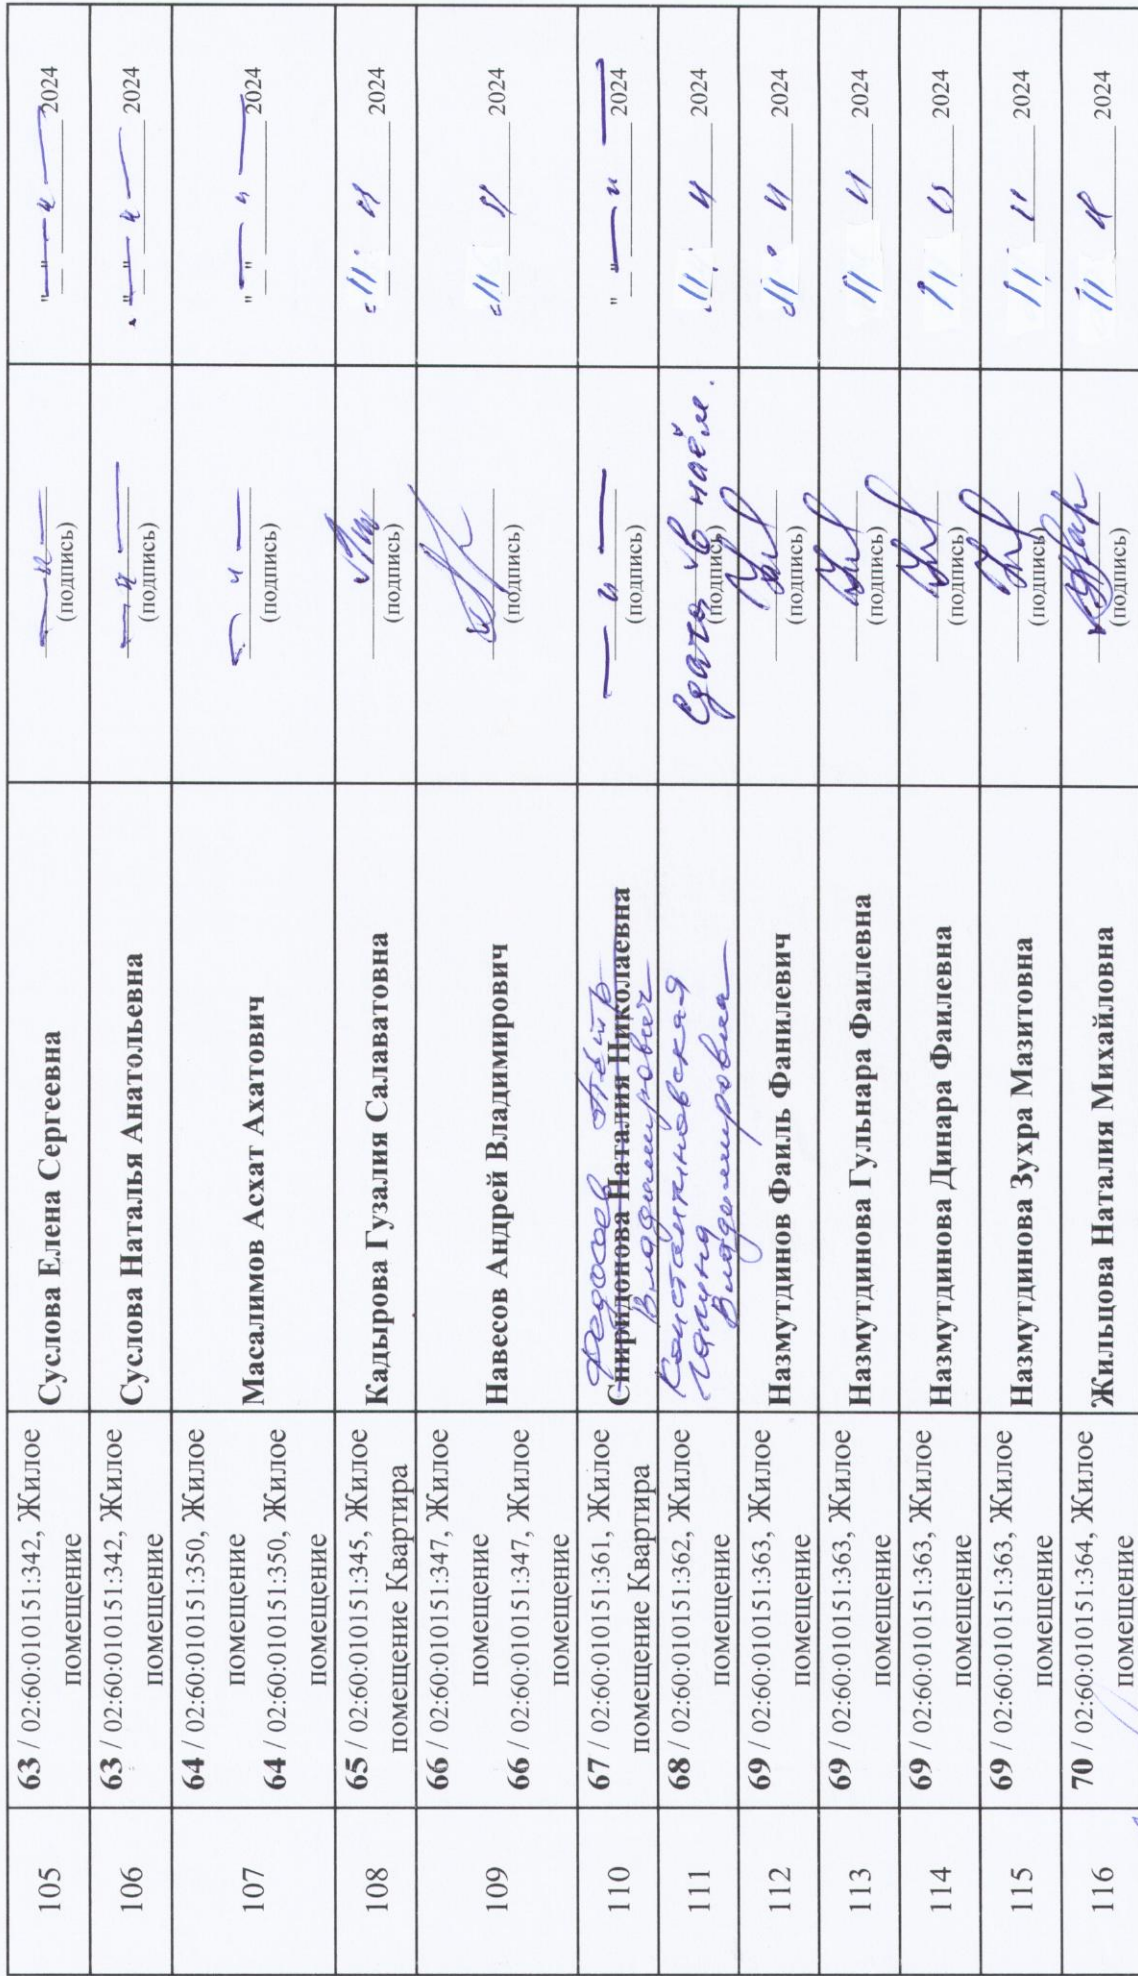 105
63 / 02:60:010151:342, Жилое
помещение
Суслова Елена Сергеевна
(подпись)
"—"—" 2024
106
63 / 02:60:010151:342, Жилое
помещение
Суслова Наталья Анатольевна
(подпись)
"—"—" 2024
107
64 / 02:60:010151:350, Жилое
помещение
64 / 02:60:010151:350, Жилое
помещение
Масалимов Асхат Ахатович
(подпись)
"—"—" 2024
108
65 / 02:60:010151:345, Жилое
помещение Квартира
Кадырова Гузалия Салаватовна
(подпись)
2024
109
66 / 02:60:010151:347, Жилое
помещение
66 / 02:60:010151:347, Жилое
помещение
Навесов Андрей Владимирович
(подпись)
2024
110
67 / 02:60:010151:361, Жилое
помещение Квартира
Спиридонова Наталия Николаевна
Владимирович
(подпись)
"—"—" 2024
111
68 / 02:60:010151:362, Жилое
помещение
Константиновская
Владимировна
Сдача в наём.
(подпись)
2024
112
69 / 02:60:010151:363, Жилое
помещение
Назмутдинов Фаиль Фанилевич
(подпись)
2024
113
69 / 02:60:010151:363, Жилое
помещение
Назмутдинова Гульнара Фаилевна
(подпись)
2024
114
69 / 02:60:010151:363, Жилое
помещение
Назмутдинова Динара Фаилевна
(подпись)
2024
115
69 / 02:60:010151:363, Жилое
помещение
Назмутдинова Зухра Мазитовна
(подпись)
2024
116
70 / 02:60:010151:364, Жилое
помещение
Жильцова Наталия Михайловна
(подпись)
2024